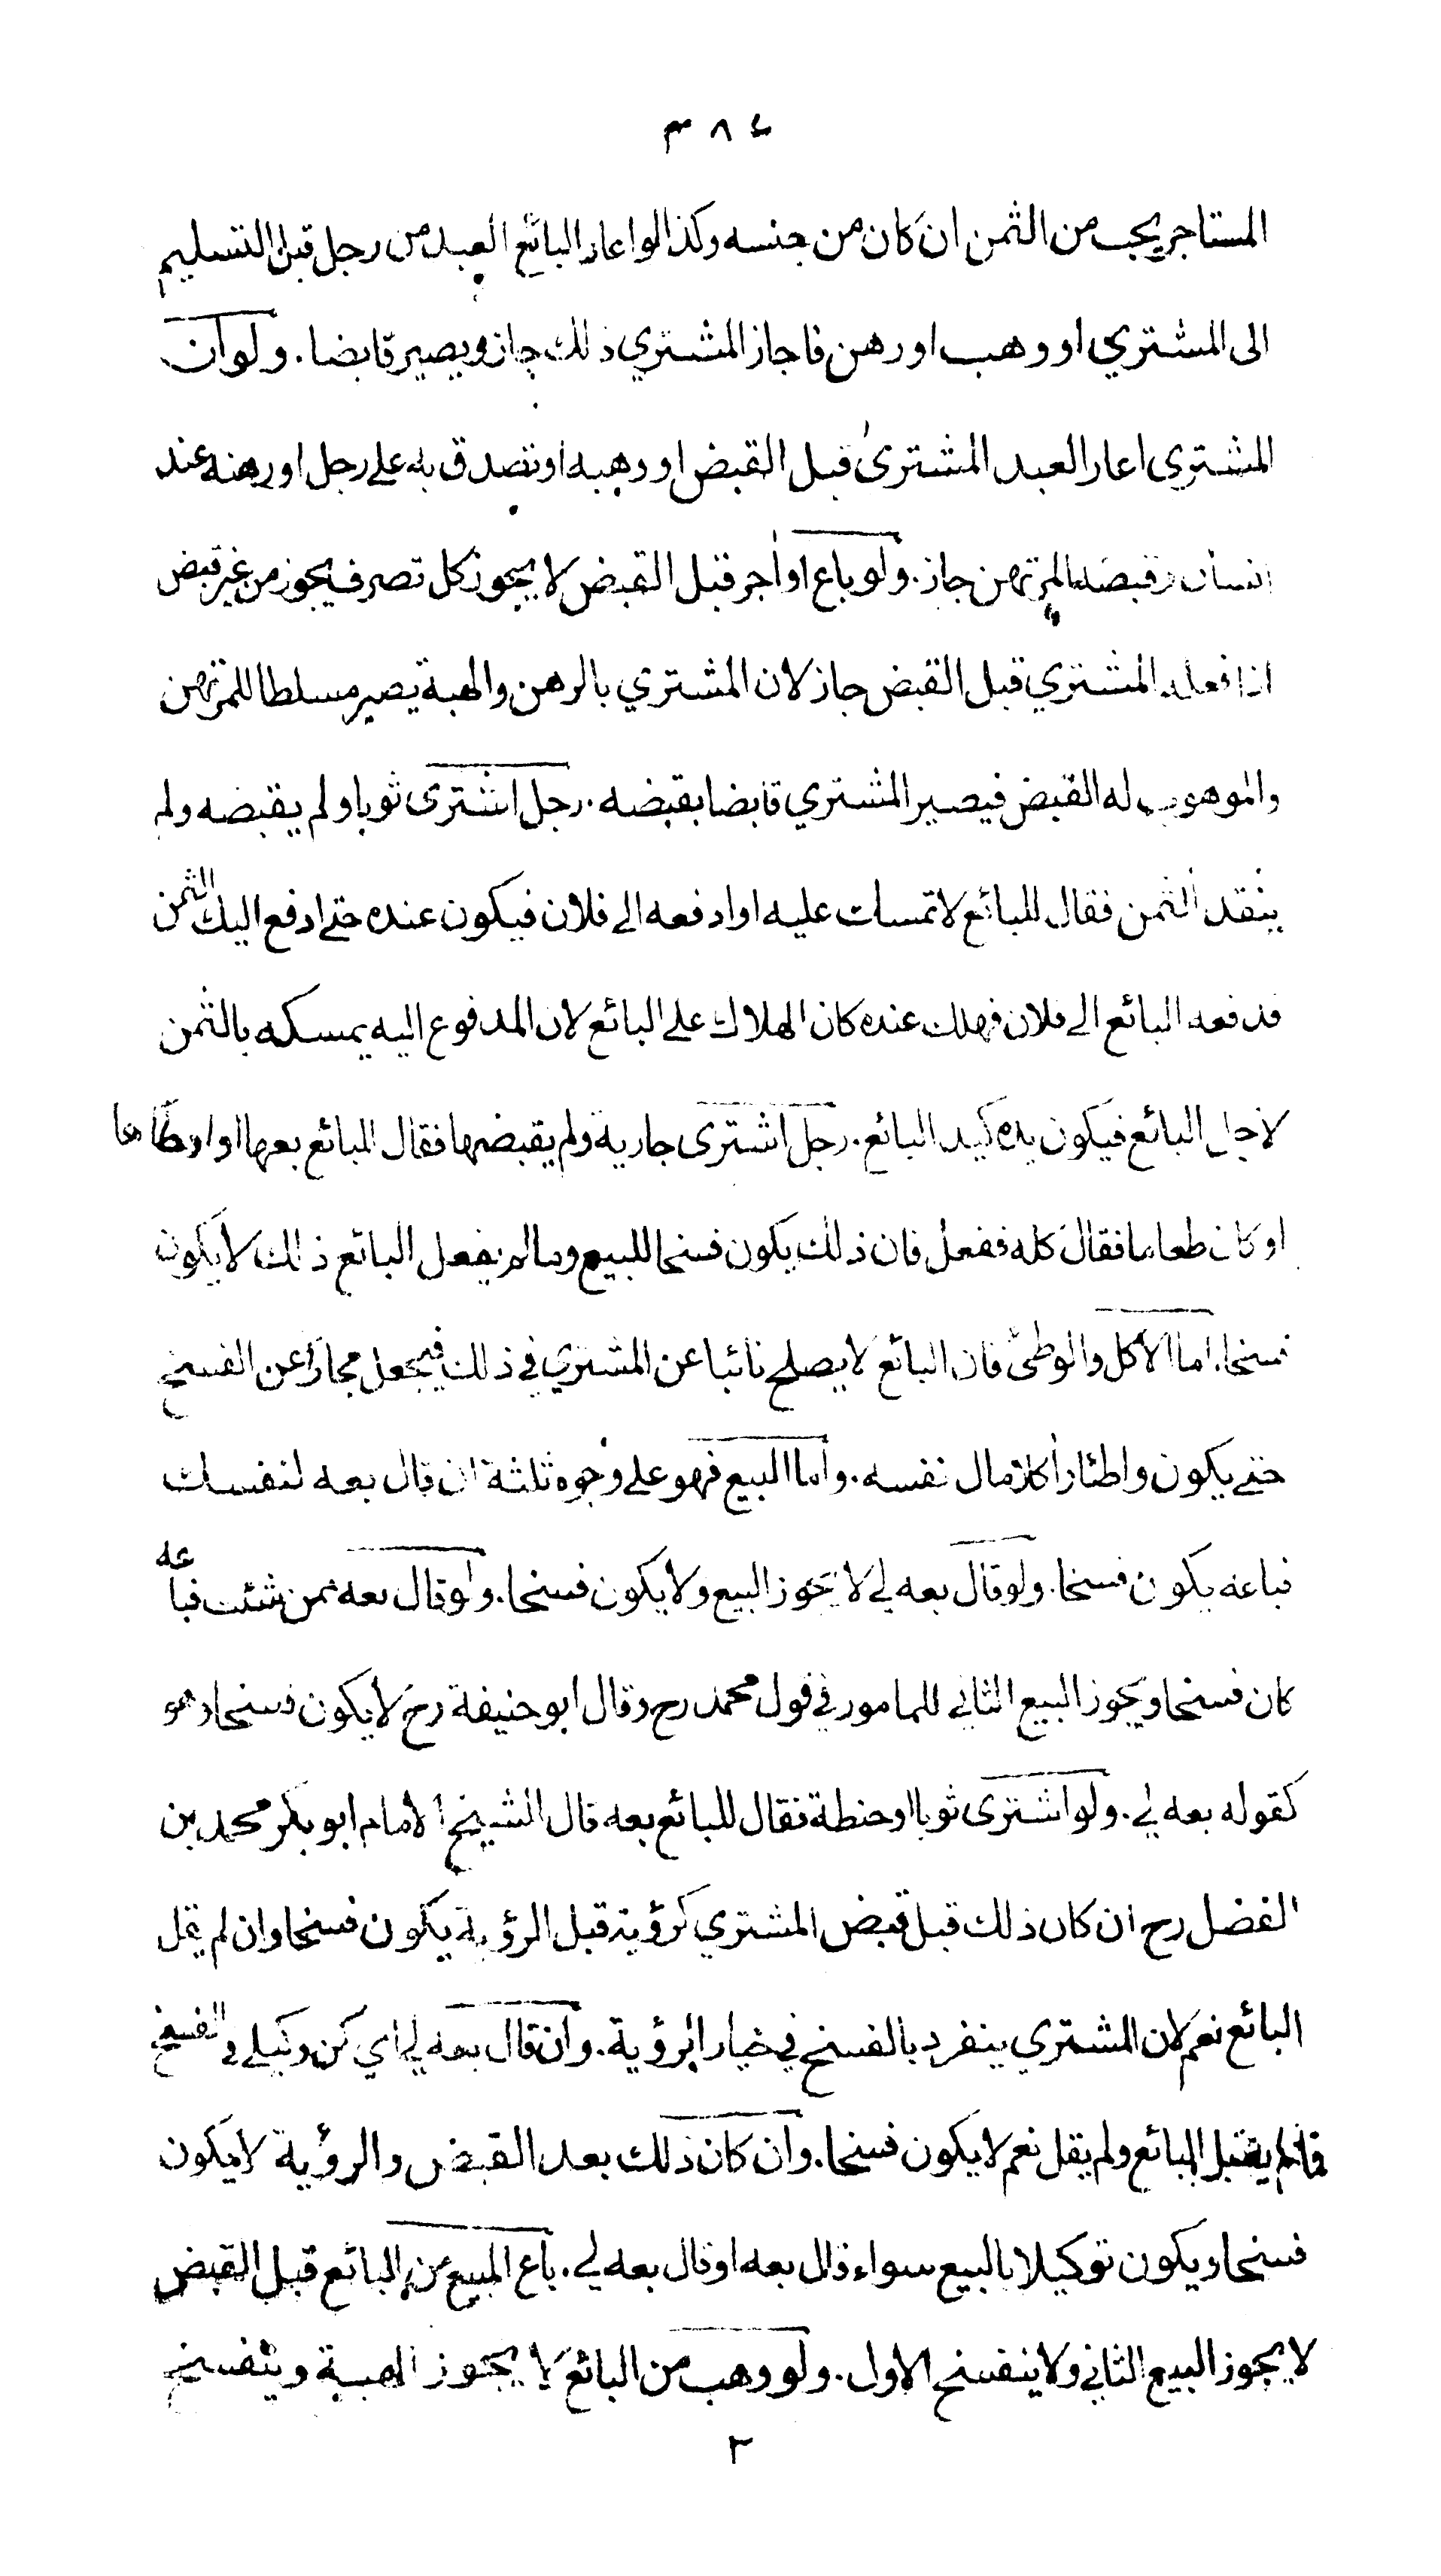 ٣٨٤
المستاجر يجب من الثمن ان كان من جنسه وكذا لو اعار البائع العبد من رجل قبل التسليم
الى المشتري او وهب او رهن فاجاز المشتري ذلك جاز ويصير قابضا. ولو ان
المشترى اعار العبد المشترى قبل القبض او وهبه او تصدق به على رجل او رهنه عند
انسان وقبضه المرتهن جاز. ولو باع او اجر قبل القبض لا يجوز كل تصرف يجوز من غير قبض
اذا فعله المشتري قبل القبض جاز لان المشتري بالرهن والهبة يصير مسلطا للمرتهن
والموهوب له القبض فيصير المشتري قابضا بقبضه. رجل اشترى ثوبا ولم يقبضه ولم
ينقد الثمن فقال للبائع لا تمسك عليه او ادفعه الى فلان فيكون عنده حتى ادفع اليك الثمن
فدفعه البائع الى فلان فهلك عنده كان الهلاك على البائع لان المدفوع اليه يمسكه بالثمن
لاجل البائع فيكون يده كيد البائع. رجل اشترى جارية ولم يقبضها فقال للبائع بعها او اوطأها
او كان طعاما فقال كله ففعل فان ذلك يكون فسخا للبيع وما لم يفعل البائع ذلك لا يكون
فسخا. اما الاكل والوطئ فان البائع لا يصلح نائبا عن المشتري في ذلك فيجعل مجازا عن الفسخ
حتى يكون واطئا واكلا مال نفسه. واما البيع فهو على وجوه ثلثة ان قال بعه لنفسك
فباعه يكون فسخا. ولو قال بعه لي لا يجوز البيع ولا يكون فسخا. ولو قال بعه ممن شئت فباعه
كان فسخا ويجوز البيع الثاني للمامور في قول محمد رح وقال ابو حنيفة رح لا يكون فسخا وهو
كقوله بعه لي. ولو اشترى ثوبا او حنطة فقال للبائع بعه قال الشيخ الامام ابو بكر محمد بن
الفضل رح ان كان ذلك قبل قبض المشتري كرؤية قبل الرؤية يكون فسخا وان لم يقل
البائع نعم لان المشتري ينفرد بالفسخ في خيار الرؤية. وان قال بعه لي اي كن وكيلي في الفسخ
فما لم يقبل البائع ولم يقل نعم لا يكون فسخا. وان كان ذلك بعد القبض والرؤية لا يكون
فسخا ويكون توكيلا بالبيع سواء قال بعه او قال بعه لي. باع المبيع من البائع قبل القبض
لا يجوز البيع الثاني ولا ينفسخ الاول. ولو وهب من البائع لا يجوز الهبة وينفسخ
٣